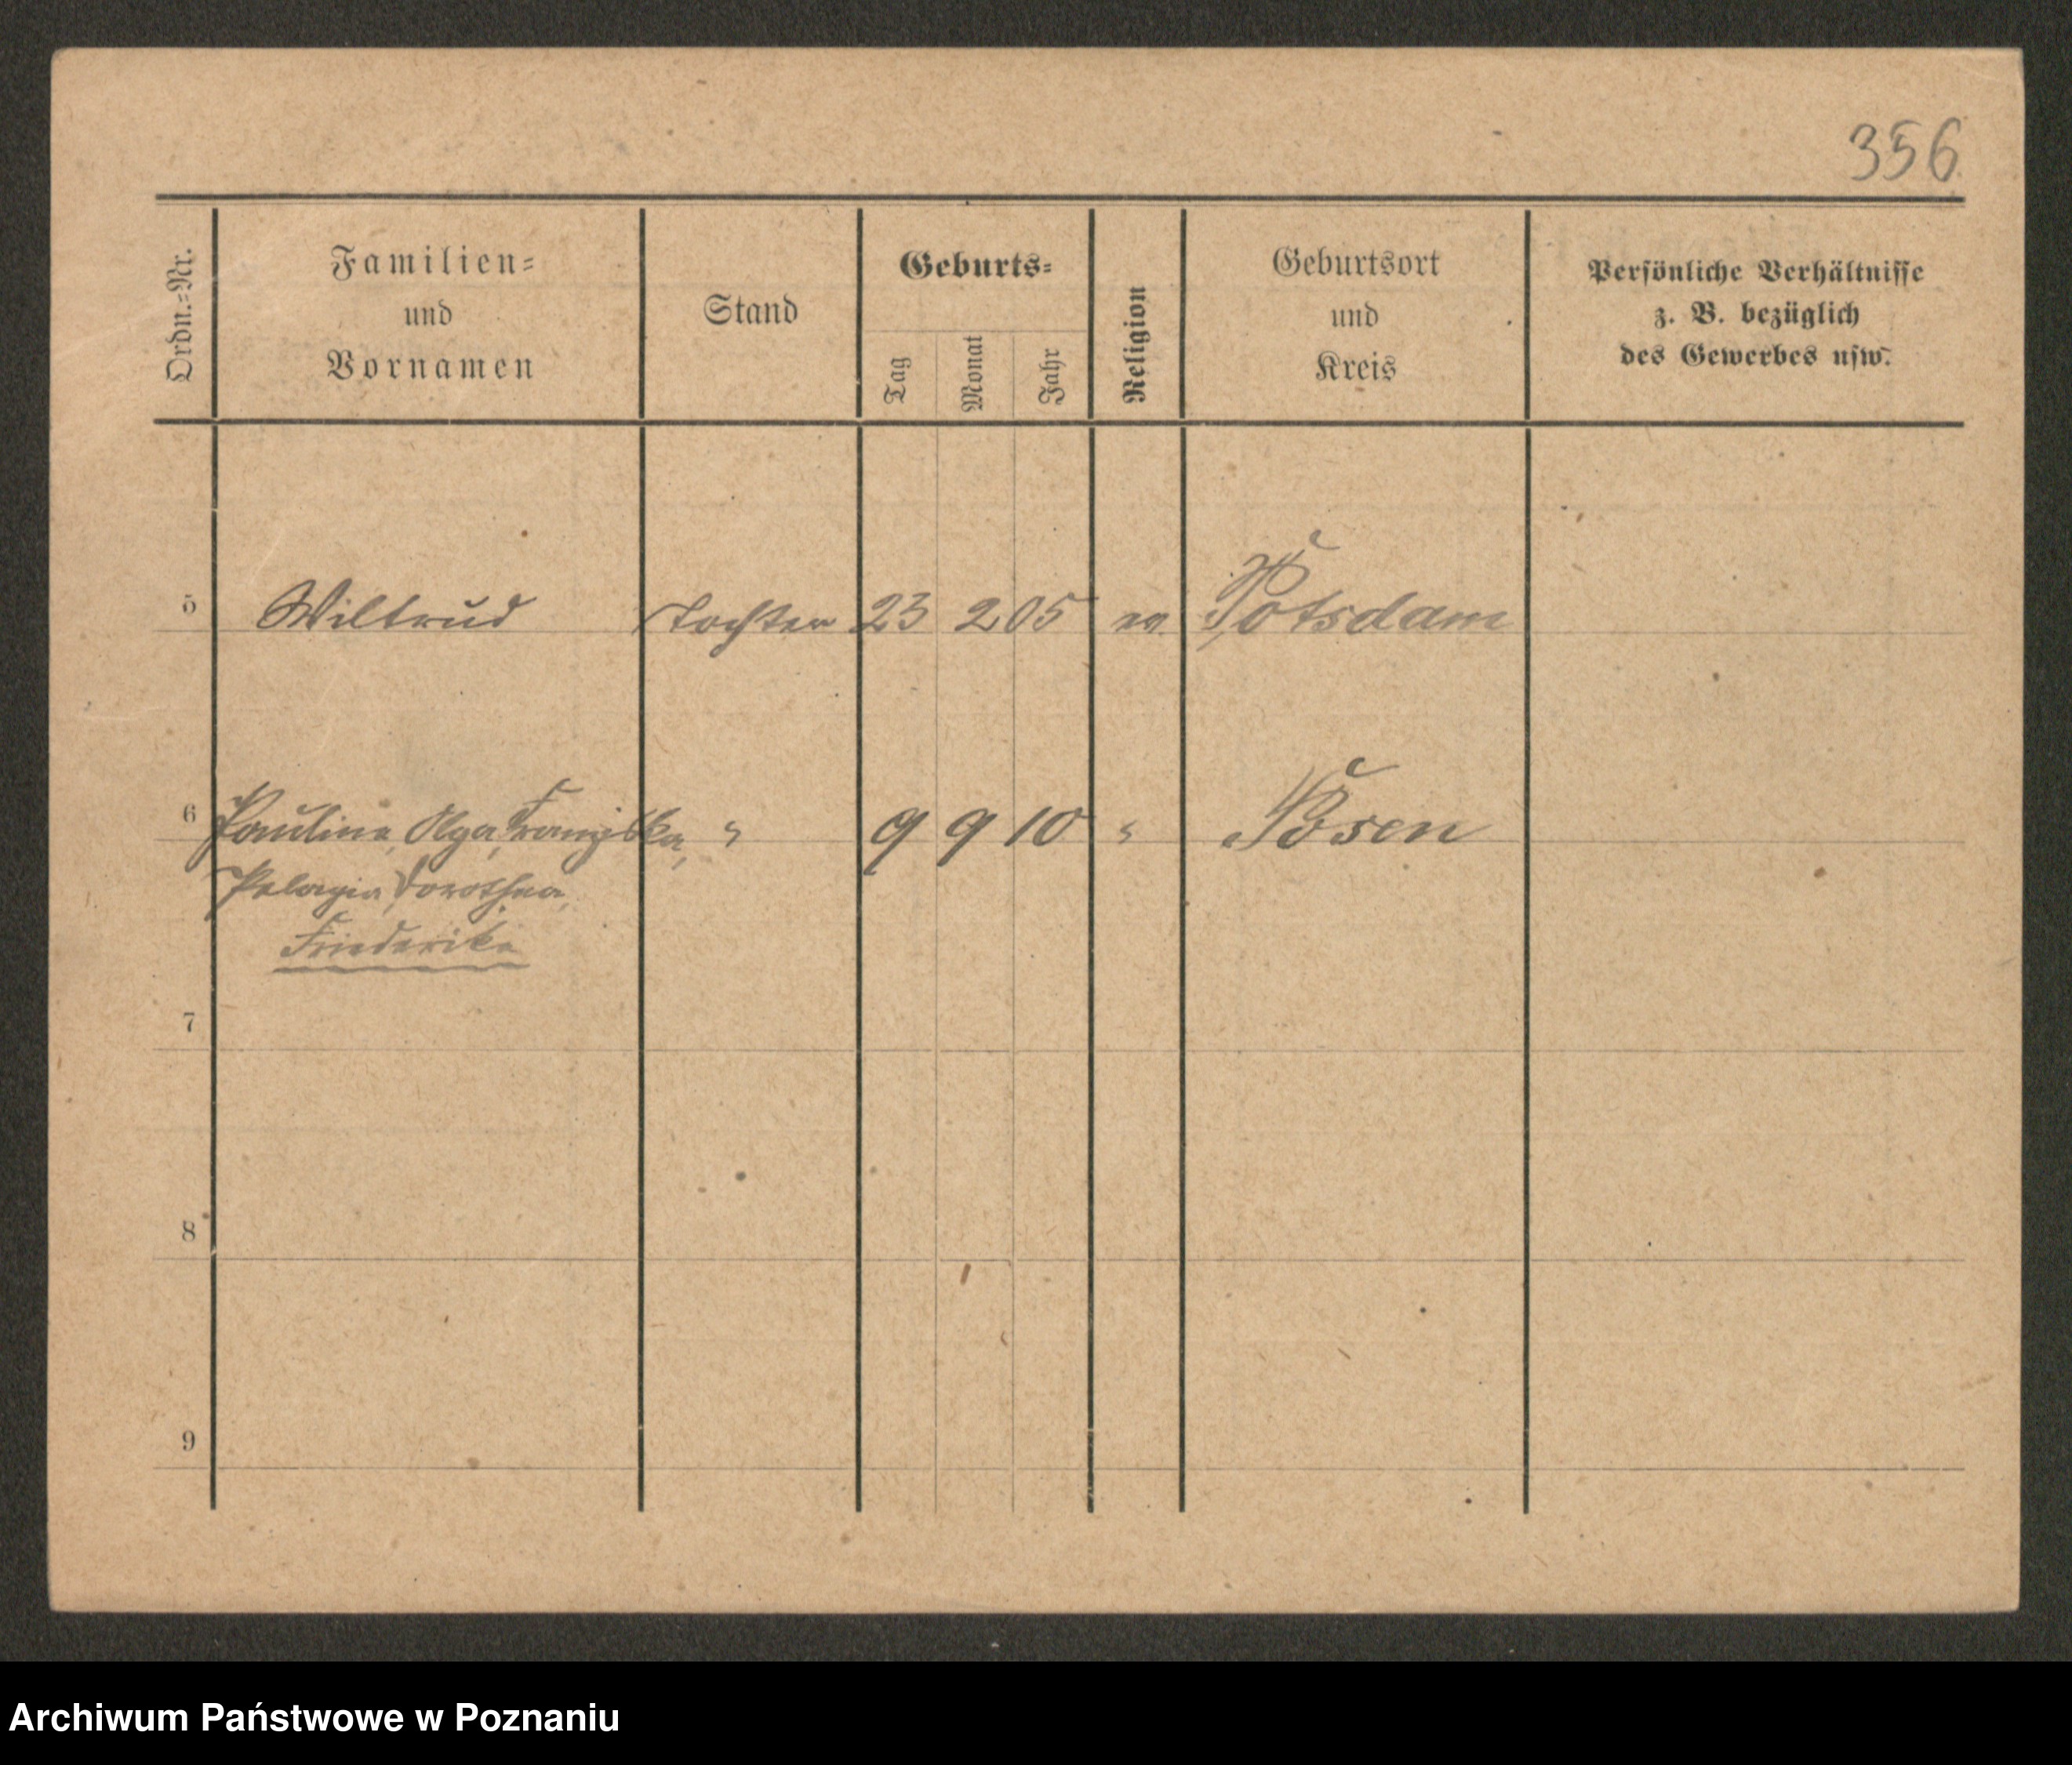 356
Ordn.=Nr.
Familien=
und
Vornamen
Stand
Geburts=
Tag
Monat
Jahr
Religion
Geburtsort
und
Kreis
Persönliche Verhältnisse
z. B. bezüglich
des Gewerbes usw.
5 Wiltrud Tochter 23 2 05 ev. Potsdam
6 Pauline, Olga, Franziska, " 9 9 10 " Posen
Pelagia, Dorothea,
Friederike
7
8
9
Archiwum Państwowe w Poznaniu